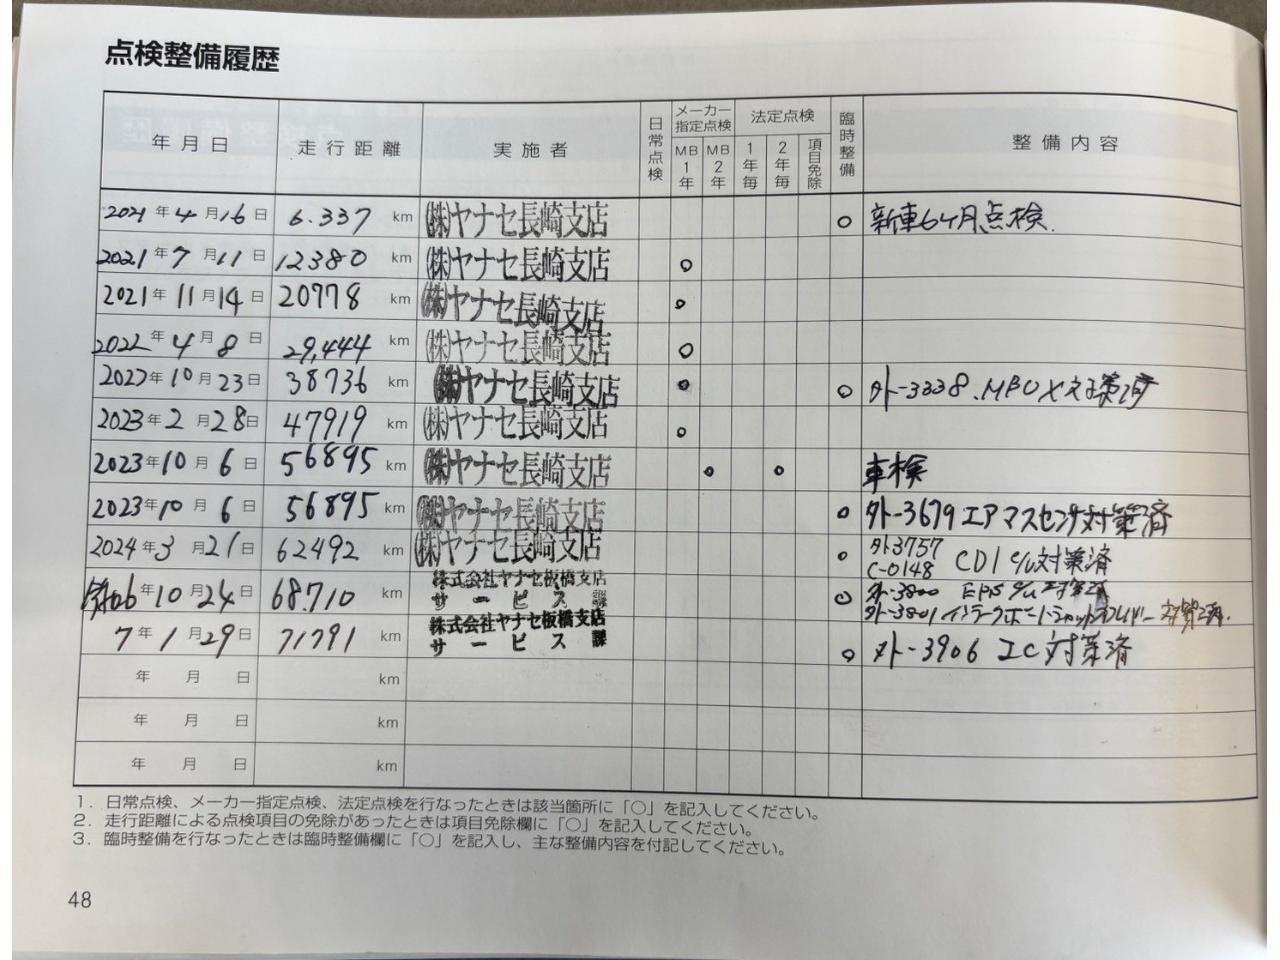 点検整備履歴
年月日 走行距離 実施者 日常点検 メーカー指定点検 MB1年 MB2年 法定点検 1年毎 2年毎 項目免除 臨時整備 整備内容
2021年4月16日 6.337 km (株)ヤナセ長崎支店 ○ 新車6ヶ月点検.
2021年7月11日 12380 km (株)ヤナセ長崎支店 ○
2021年11月14日 20778 km (株)ヤナセ長崎支店 ○
2022年4月8日 29,444 km (株)ヤナセ長崎支店 ○
2022年10月23日 38736 km (株)ヤナセ長崎支店 ○ ○ 外-3338.MBUX
2023年2月28日 47919 km (株)ヤナセ長崎支店 ○
2023年10月6日 56895 km (株)ヤナセ長崎支店 ○ ○ 車検
2023年10月6日 56895 km (株)ヤナセ長崎支店 ○ 外-3679 エアマスセンサ対策済
2024年3月21日 62492 km (株)ヤナセ長崎支店 ○ 外3757
C-0148 CDI C/U対策済
令和06年10月24日 68.710 km 株式会社ヤナセ板橋支店 ○ 外-3800 EPS C/U対策済
サービス課 外-3801
7年1月29日 71791 km 株式会社ヤナセ板橋支店 ○ 外-3906 IC対策済
サービス課
年 月 日 km
年 月 日 km
年 月 日 km
1. 日常点検、メーカー指定点検、法定点検を行なったときは該当箇所に「○」を記入してください。
2. 走行距離による点検項目の免除があったときは項目免除欄に「○」を記入してください。
3. 臨時整備を行なったときは臨時整備欄に「○」を記入し、主な整備内容を付記してください。
48